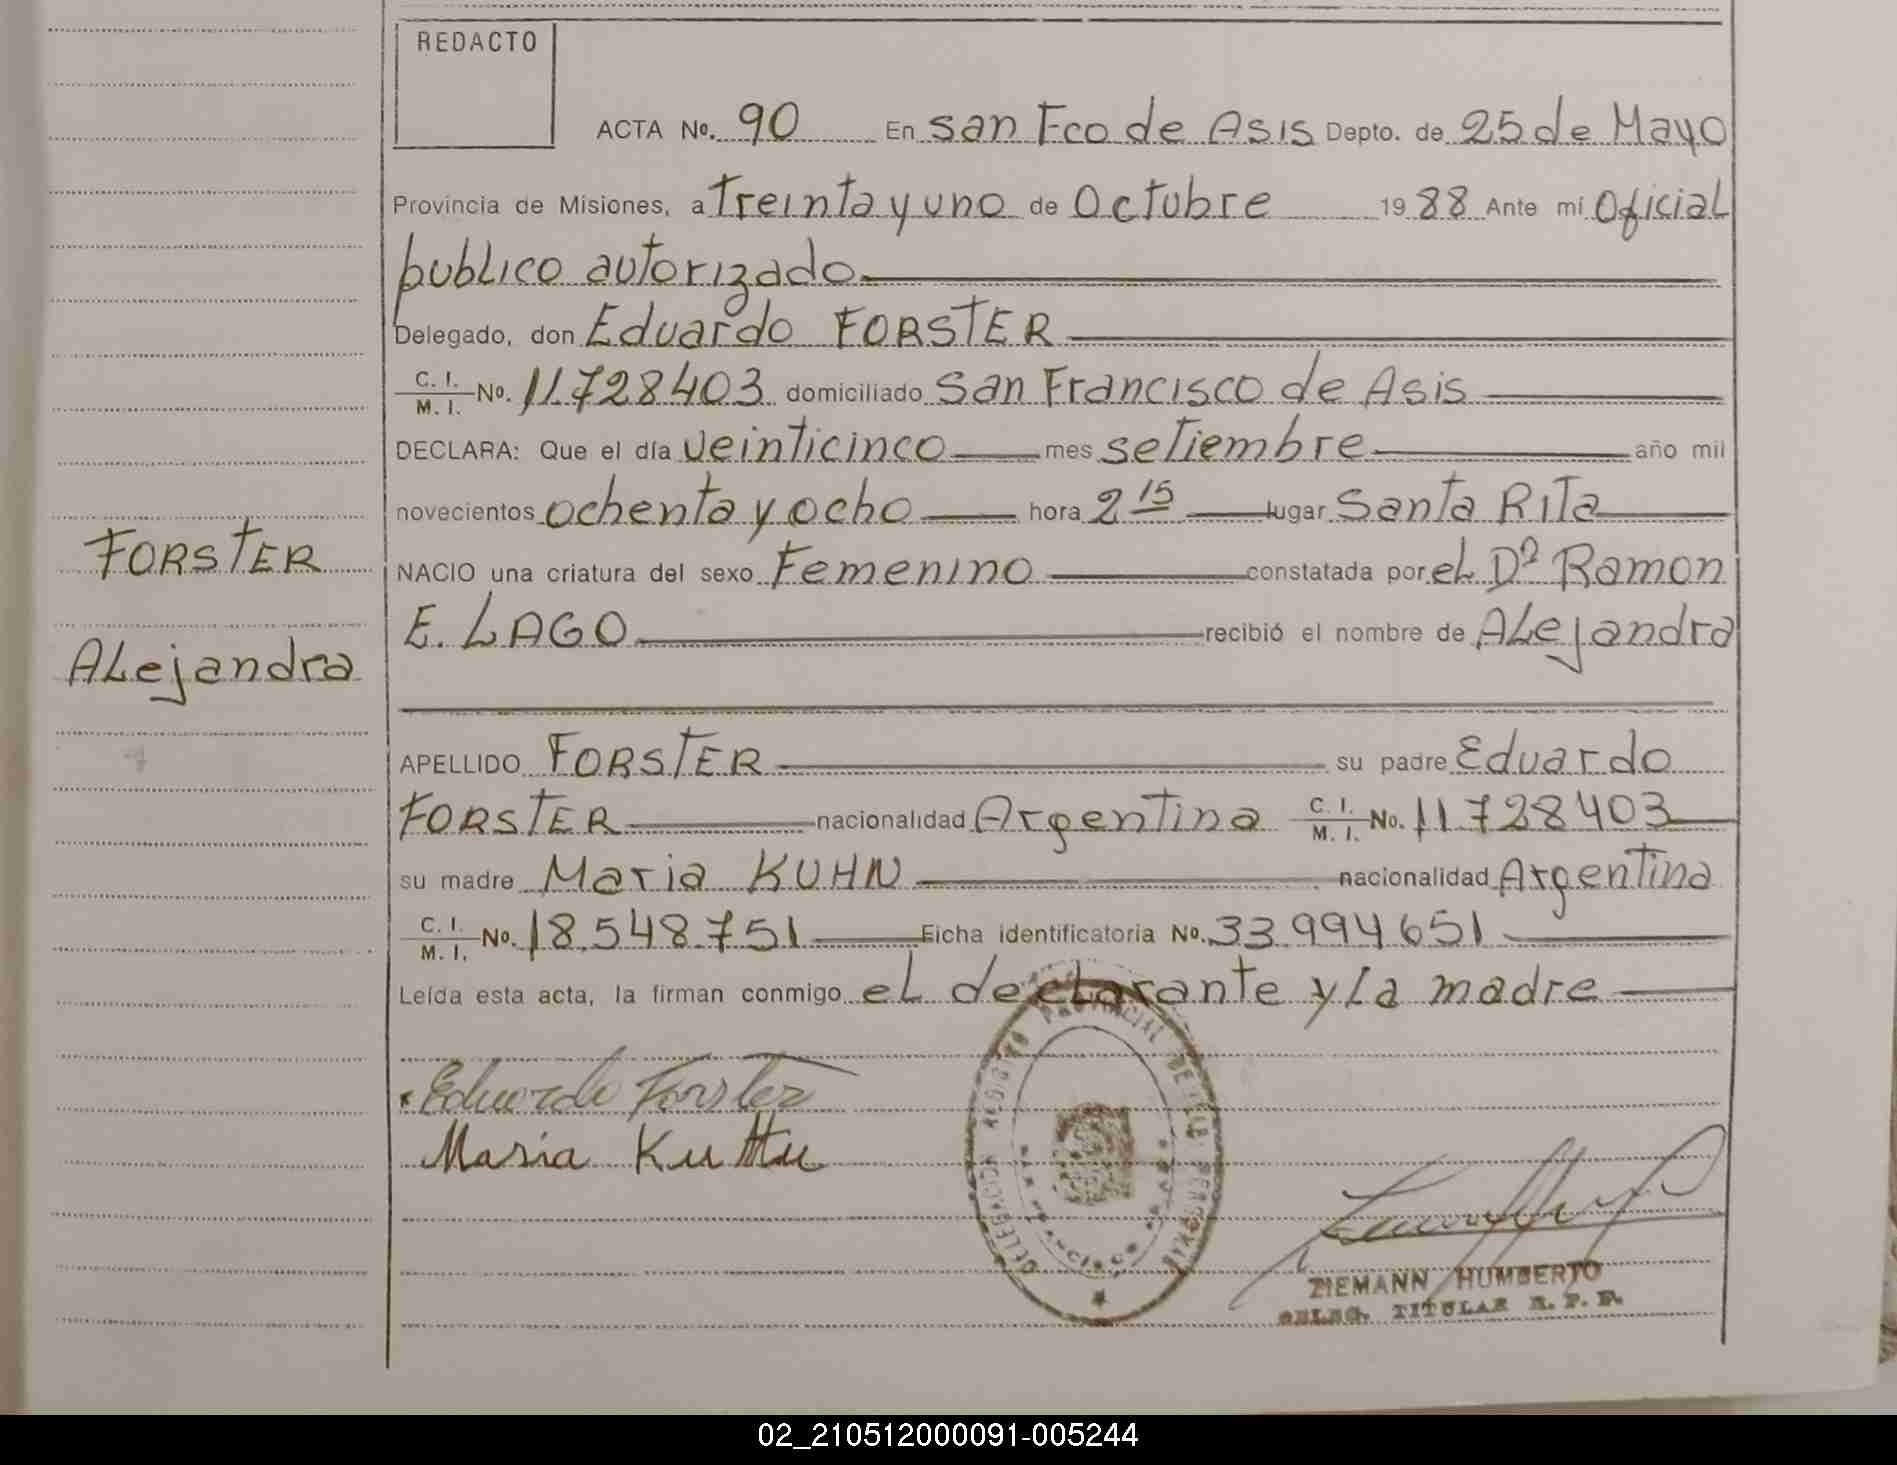 REDACTO
ACTA Nº. 90 En san Fco de Asis Depto. de 25 de Mayo
Provincia de Misiones, a Treinta y uno de Octubre 1988 Ante mí Oficial
publico autorizado
Delegado, don Eduardo FORSTER
C. I. / M. I. No. 11.728403 domiciliado San Francisco de Asis
DECLARA: Que el día veinticinco mes setiembre año mil
novecientos ochenta y ocho hora 2 15 lugar Santa Rita
FORSTER
NACIO una criatura del sexo Femenino constatada por el Dº Ramon
E. LAGO recibió el nombre de Alejandra
Alejandra
APELLIDO FORSTER su padre Eduardo
FORSTER nacionalidad Argentina C. I. / M. I. No. 11728403
su madre Maria KUHN nacionalidad Argentina
C. I. / M. I. No. 18.548.751 Ficha identificatoria Nº. 33994651
Leída esta acta, la firman conmigo el declarante y la madre
Eduardo Forster
Maria Kuhn
DELEGACION REGISTRO PROVINCIAL DE LAS PERSONAS
SAN FRANCISCO DE ASIS
ZIEMANN HUMBERTO
DELEG. TITULAR R. P. P.
02_210512000091-005244